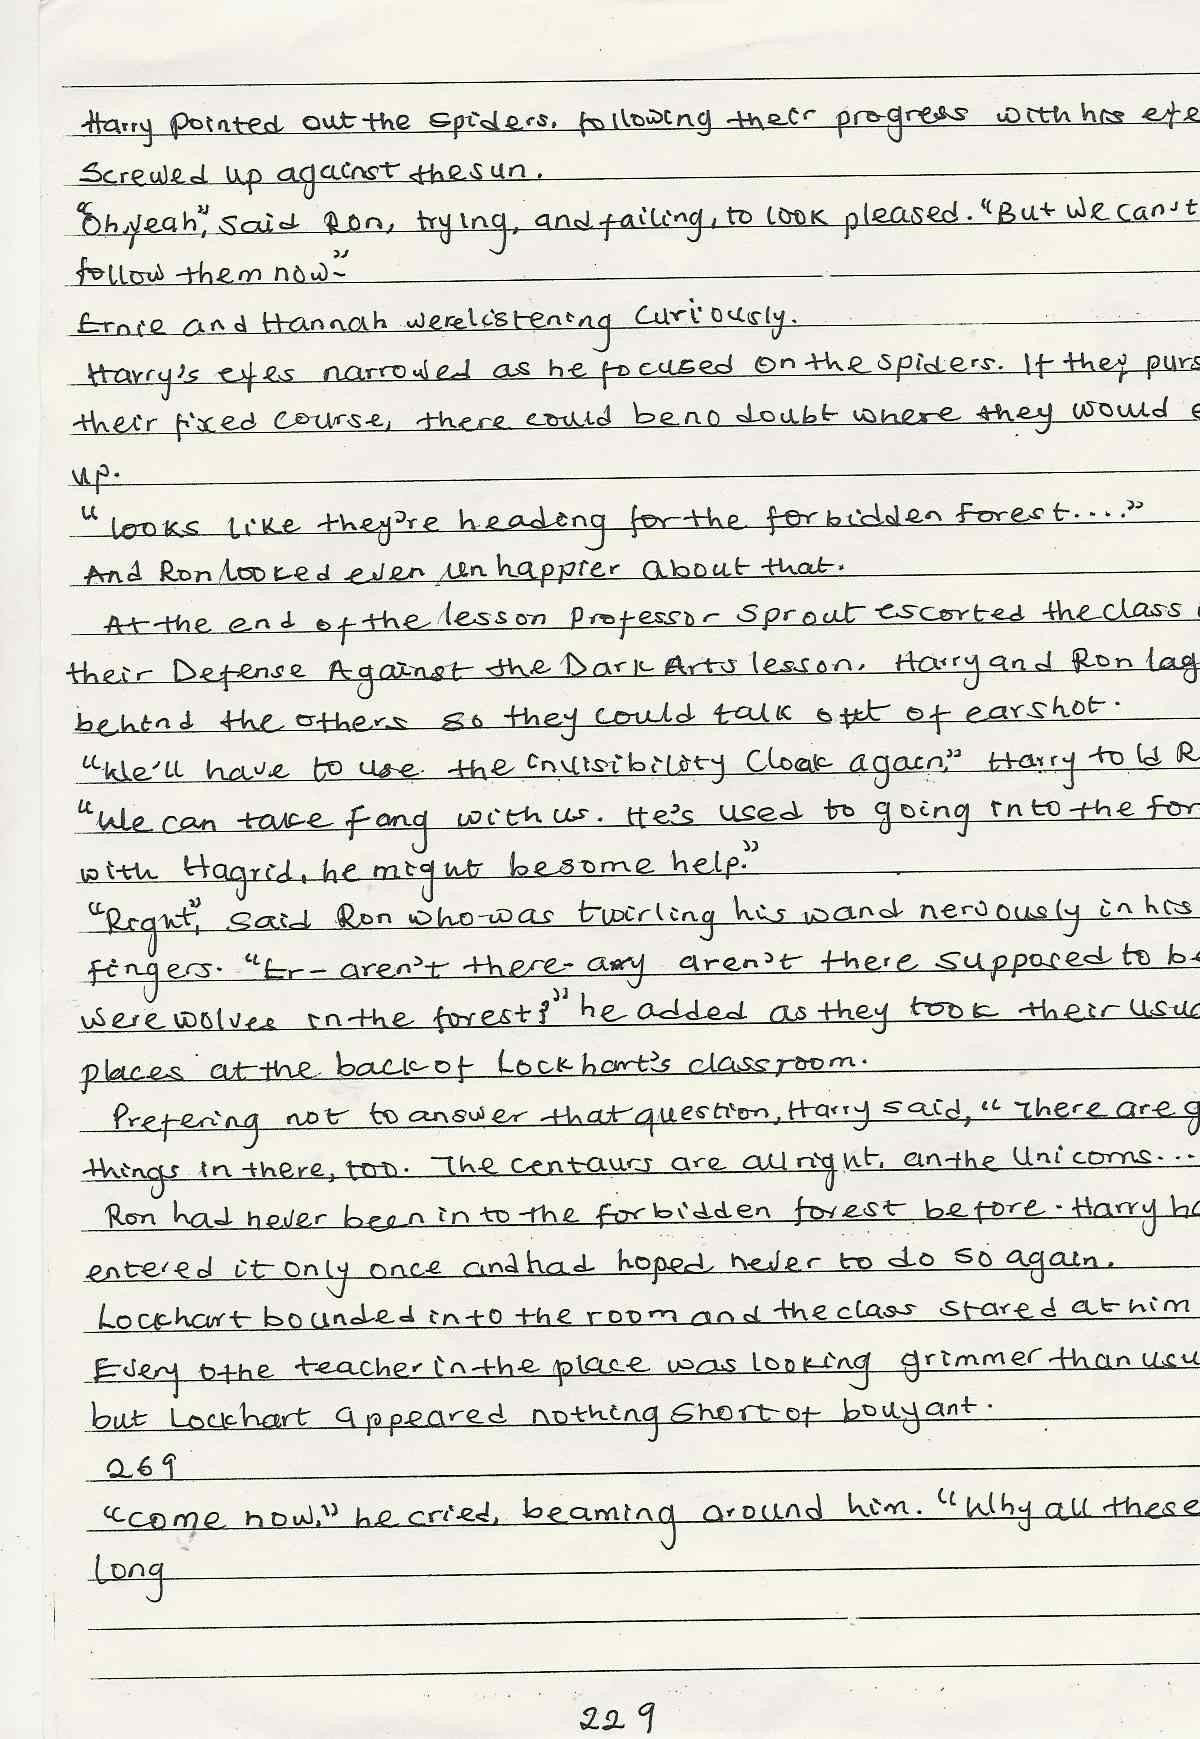 Harry pointed out the spiders, following their progress with his eye
Screwed up against the sun.
"Oh, yeah," said Ron, trying, and failing, to look pleased. "But we can't
follow them now-"
Ernie and Hannah were listening curiously.
Harry's eyes narrowed as he focused on the spiders. If they purs
their fixed course, there could be no doubt where they would e
up.
"looks like they're heading for the forbidden forest...."
And Ron looked even unhappier about that.
At the end of the lesson Professor Sprout escorted the class
their Defense Against the Dark Arts lesson. Harry and Ron lag
behind the others so they could talk out of earshot.
"We'll have to use the invisibility Cloak again," Harry told R
"We can take fang with us. He's used to going into the for
with Hagrid, he might be some help."
"Right," said Ron who was twirling his wand nervously in his
fingers. "Er- aren't there- any aren't there supposed to be
werewolves in the forest?" he added as they took their usua
places at the back of Lockhart's classroom.
Prefering not to answer that question, Harry said, "There are g
things in there, too. The centaurs are all right, an the Unicorns...
Ron had never been into the forbidden forest before. Harry ha
entered it only once and had hoped never to do so again.
Lockhart bounded into the room and the class stared at him
Every othe teacher in the place was looking grimmer than usu
but Lockhart appeared nothing short of bouyant.
269
"come now," he cried, beaming around him. "Why all these
long
229